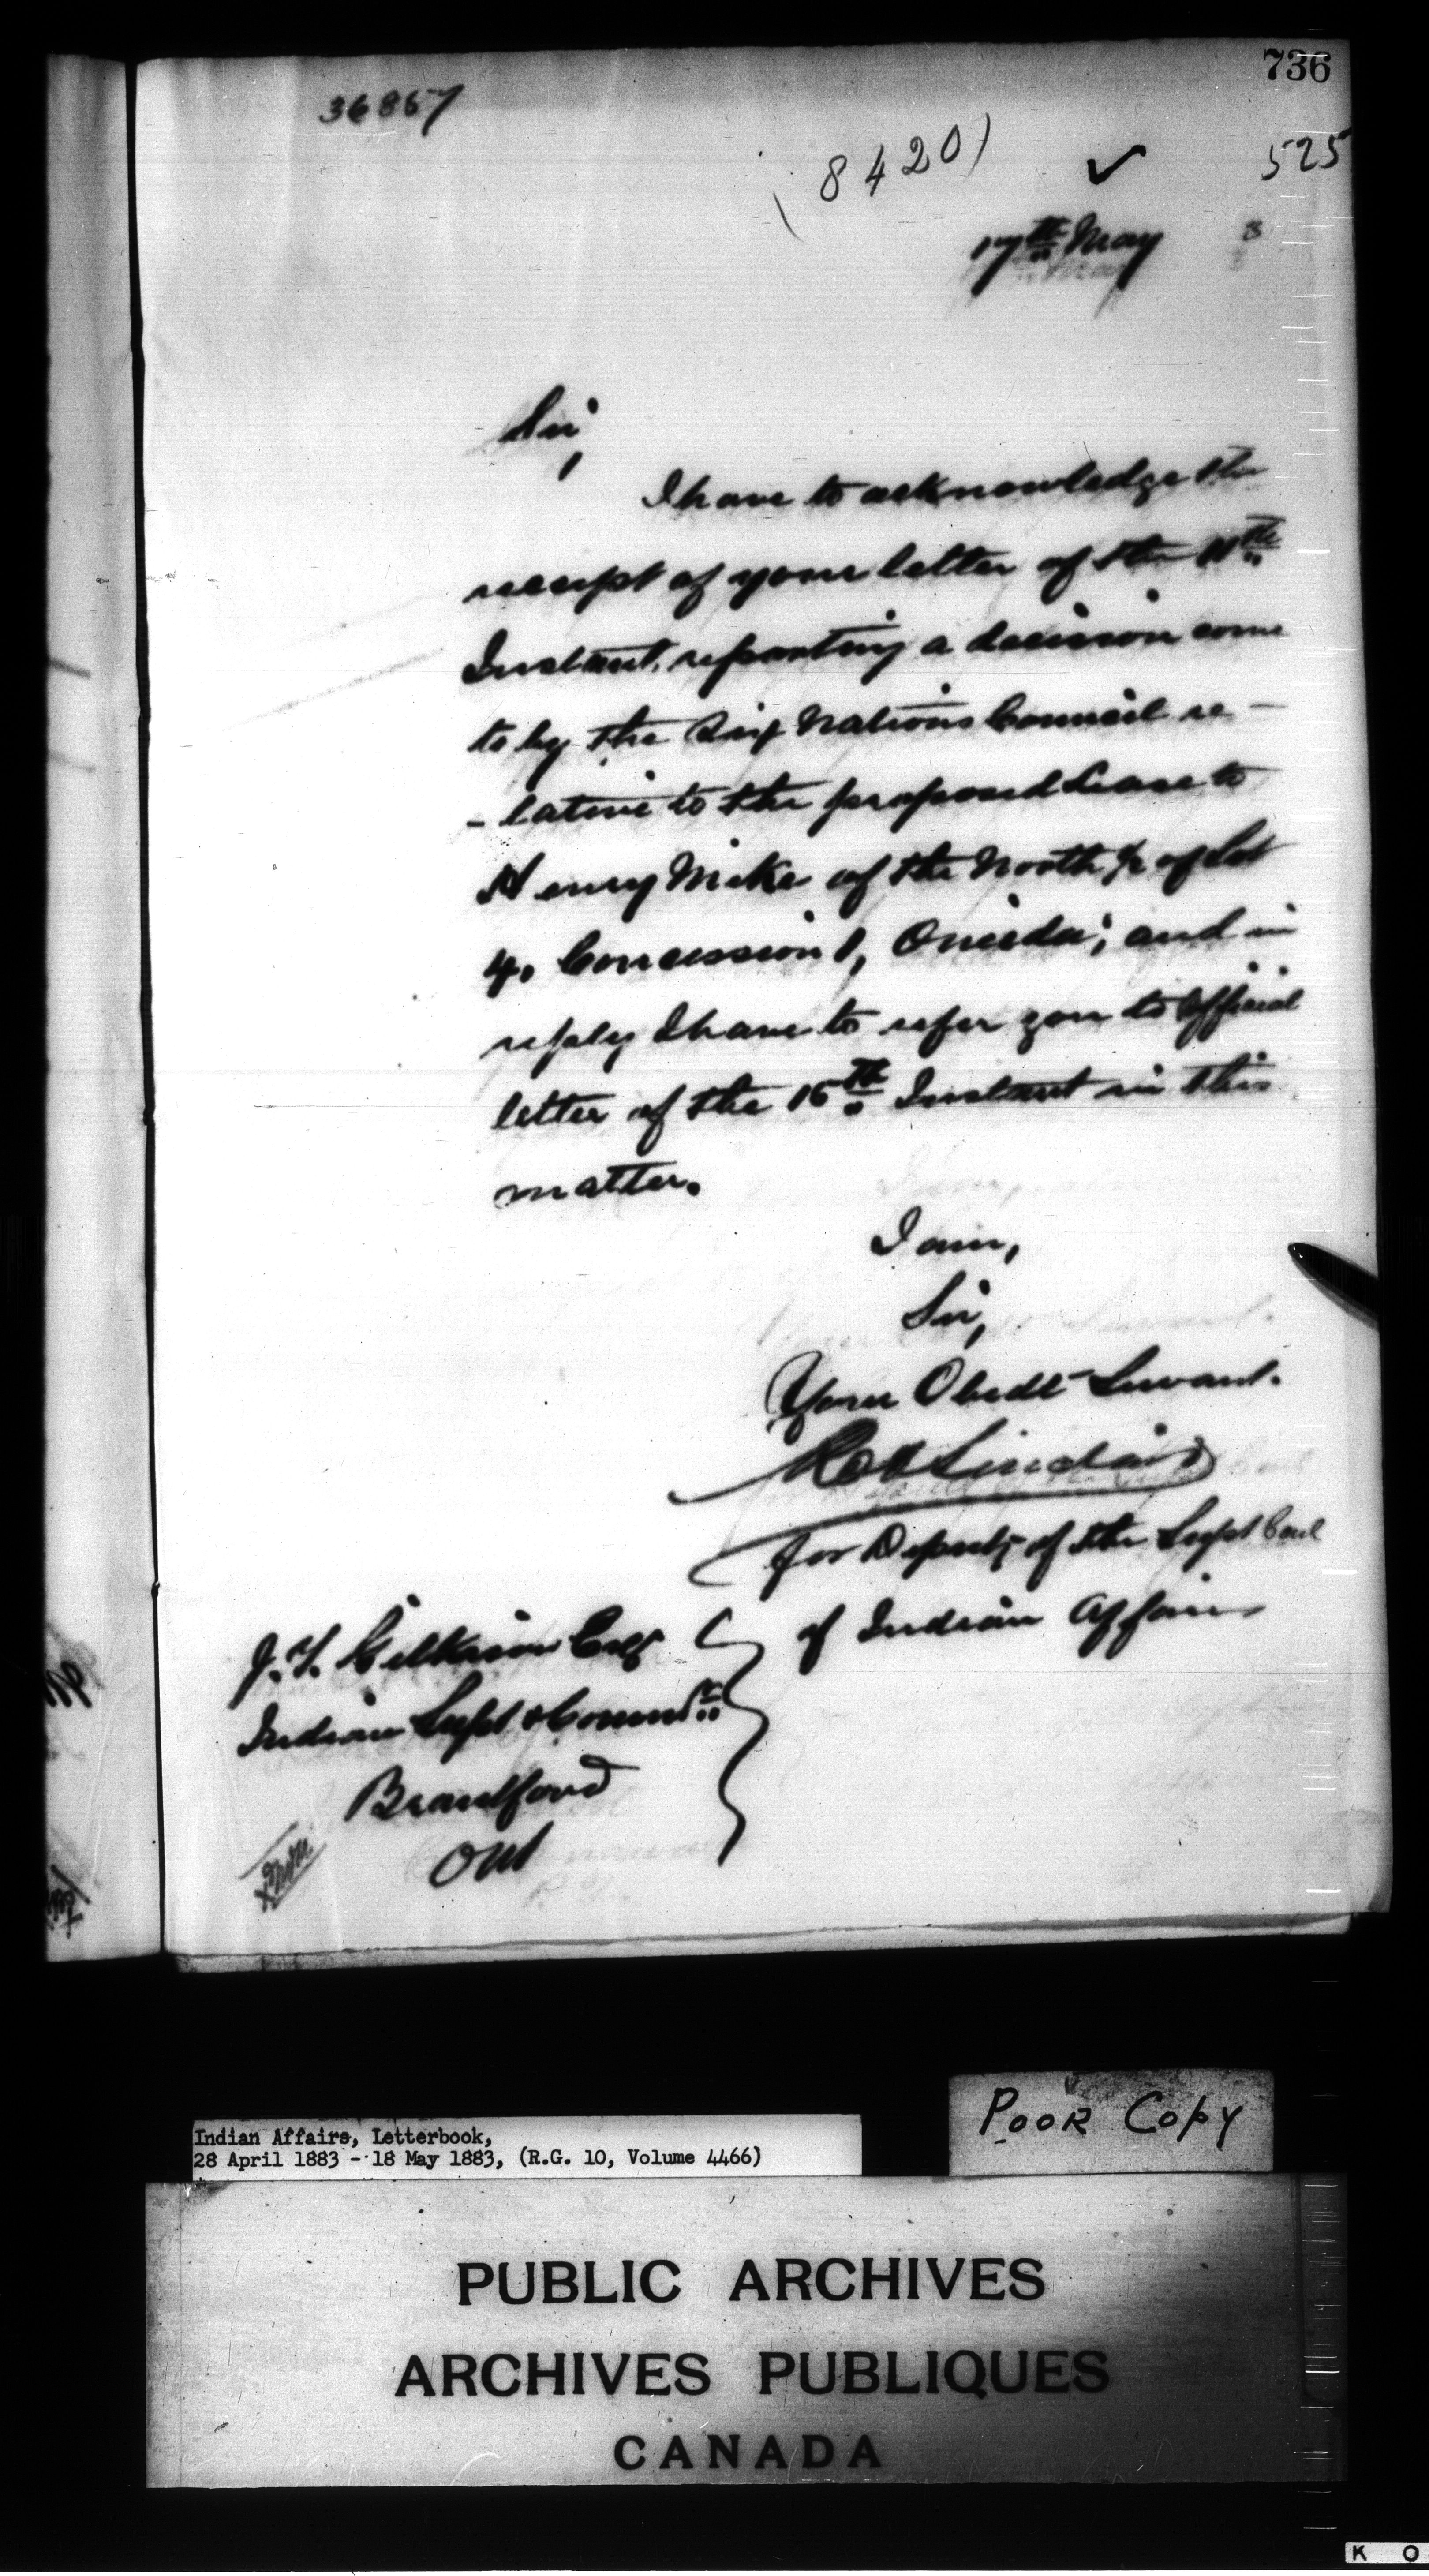 736
36857
(8420)
525
17th May 3
Sir,
I have to acknowledge the
receipt of your letter of the 11th
Instant, reporting a decision come
to by the Six Nations Council re-
-lative to the proposed Lease to
Henry Mike of the North ½ of Lot
4, Concession 1, Oneida; and in
reply I have to refer you to official
letter of the 15th Instant in this
matter.
I am,
Sir,
Your Obedt Servant.
Robt Sinclair
for Deputy of the Supt Genl
of Indian Affairs
J. T. Gilkison Esq
Indian Supt & Commr
Brantford
Ont
POOR COPY
Indian Affairs, Letterbook,
28 April 1883 - 18 May 1883, (R.G. 10, Volume 4466)
PUBLIC ARCHIVES
ARCHIVES PUBLIQUES
CANADA
K O